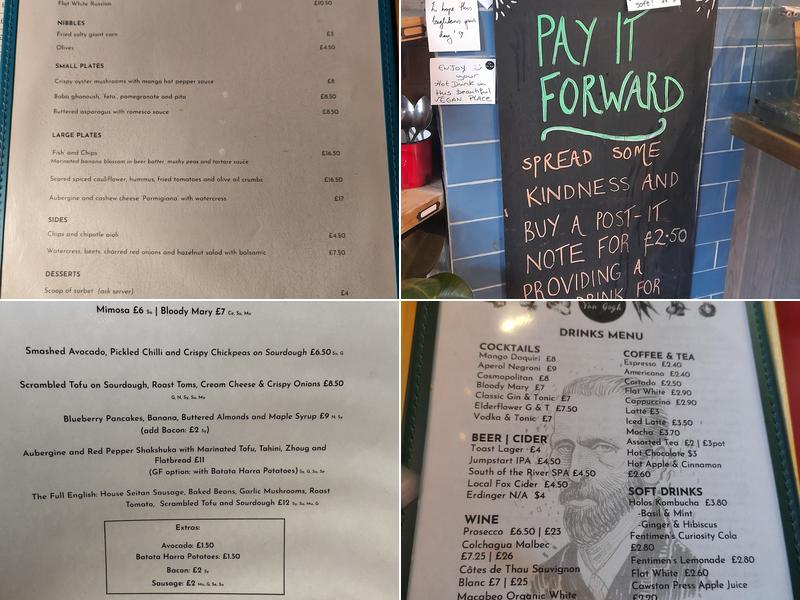 Flat White Russian £10.50
NIBBLES
Fried salty giant corn £3
Olives £4.50
SMALL PLATES
Crispy oyster mushrooms with mango hot pepper sauce £8
Baba ghanoush, feta, pomegranate and pita £8.50
Buttered asparagus with romesco sauce £8.50
LARGE PLATES
'Fish' and Chips £16.50
Marinated banana blossom in beer batter, mushy peas and tartare sauce
Seared spiced cauliflower, hummus, fried tomatoes and olive oil crumbs £16.50
Aubergine and cashew cheese 'Parmigiana' with watercress £17
SIDES
Chips and chipotle aioli £4.50
Watercress, beets, charred red onions and hazelnut salad with balsamic £7.50
DESSERTS
Scoop of sorbet (ask server) £4
I hope this
brightens your
day!
ENJOY
your
Hot Drink in
this beautiful
VEGAN PLACE
PAY IT
FORWARD
SPREAD SOME
KINDNESS AND
BUY A POST-IT
NOTE FOR £2.50
PROVIDING A
DRINK FOR
Mimosa £6 Su | Bloody Mary £7 Ce, Su, Mu
Smashed Avocado, Pickled Chilli and Crispy Chickpeas on Sourdough £6.50 Su, G
Scrambled Tofu on Sourdough, Roast Toms, Cream Cheese & Crispy Onions £8.50
G, N, Sy, Su, Mu
Blueberry Pancakes, Banana, Buttered Almonds and Maple Syrup £9 N, Sy
(add Bacon: £2 Sy)
Aubergine and Red Pepper Shakshuka with Marinated Tofu, Tahini, Zhoug and
Flatbread £11
(GF option: with Batata Harra Potatoes) Sy, G, Su, Se
The Full English: House Seitan Sausage, Baked Beans, Garlic Mushrooms, Roast
Tomato, Scrambled Tofu and Sourdough £12 Sy, Su, Mu, G
Extras:
Avocado: £1.50
Batata Harra Potatoes: £1.50
Bacon: £2 Sy
Sausage: £2 Mu, G, Se, Su
Van Gogh
DRINKS MENU
COCKTAILS
Mango Daquiri £8
Aperol Negroni £9
Cosmopolitan £8
Bloody Mary £7
Classic Gin & Tonic £7
Elderflower G & T £7.50
Vodka & Tonic £7
BEER | CIDER
Toast Lager £4
Jumpstart IPA £4.50
South of the River SPA £4.50
Local Fox Cider £4.50
Erdinger N/A $4
WINE
Prosecco £6.50 | £23
Colchagua Malbec
£7.25 | £26
Côtes de Thau Sauvignon
Blanc £7 | £25
Macabeo Organic White
COFFEE & TEA
Espresso £2.40
Americano £2.40
Cortado £2.50
Flat White £2.90
Cappuccino £2.90
Latte £3
Iced Latte £3.50
Mocha £3.70
Assorted Tea £2 | £3pot
Hot Chocolate $3
Hot Apple & Cinnamon
£2.60
SOFT DRINKS
Holos Kombucha £3.80
-Basil & Mint
-Ginger & Hibiscus
Fentimen's Curiosity Cola
£2.80
Fentimen's Lemonade £2.80
Flat White £2.60
Cawston Press Apple Juice